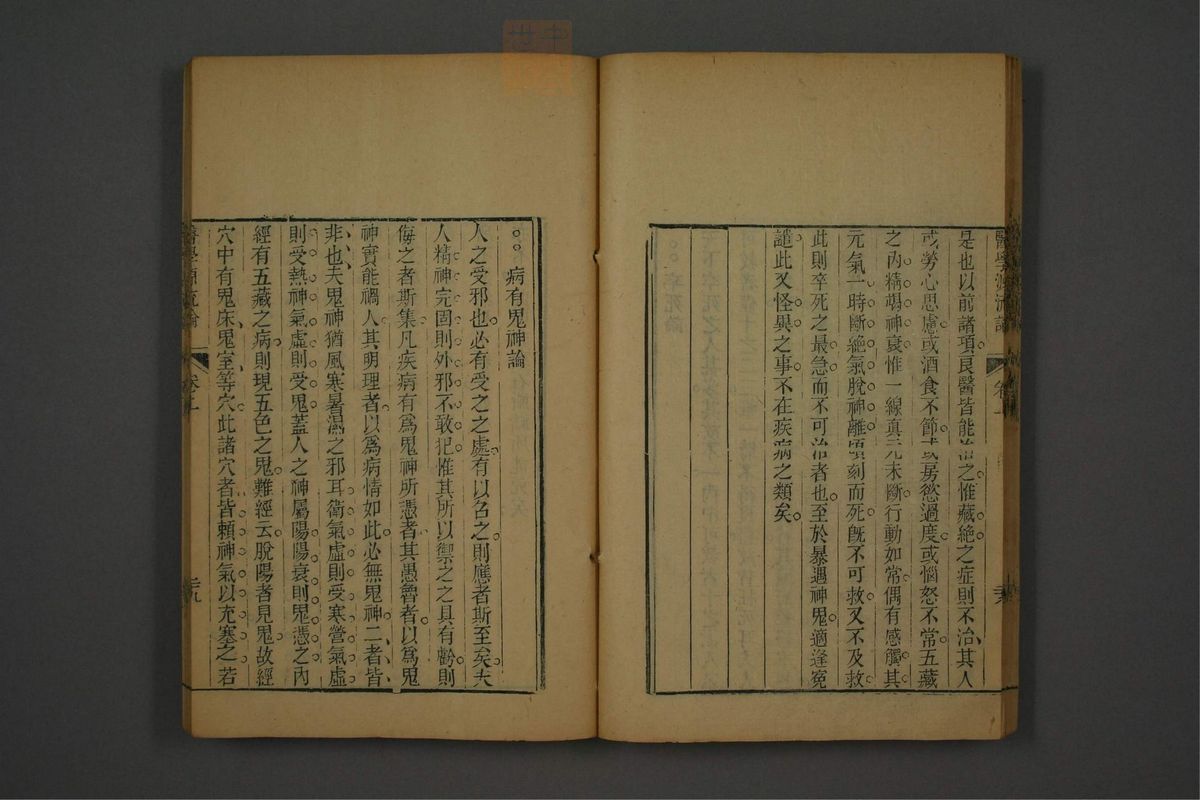 醫學源流論 卷一
是也以前諸項良醫皆能治之惟藏絶之症則不治其人
或勞心思慮或酒食不節或房慾過度或惱怒不常五藏
之內精竭神衰惟一線真元未斷行動如常偶有感觸其
元氣一時斷絶氣脫神離頃刻而死旣不可救又不及救
此則卒死之最急而不可治者也至於暴遇神鬼適逢冤
譴此又怪異之事不在疾病之類矣
病有鬼神論
人之受邪也必有受之之處有以召之則應者斯至矣夫
人精神完固則外邪不敢犯惟其所以禦之之具有虧則
侮之者斯集凡疾病有爲鬼神所憑者其愚魯者以爲鬼
神實能禍人其明理者以爲病情如此必無鬼神二者皆
非也夫鬼神猶風寒暑濕之邪耳衛氣虛則受寒營氣虛
則受熱神氣虛則受鬼蓋人之神屬陽陽衰則鬼憑之內
經有五藏之病則現五色之鬼難經云脫陽者見鬼故經
穴中有鬼床鬼室等穴此諸穴者皆賴神氣以充塞之若
醫學源流論 卷上 三九